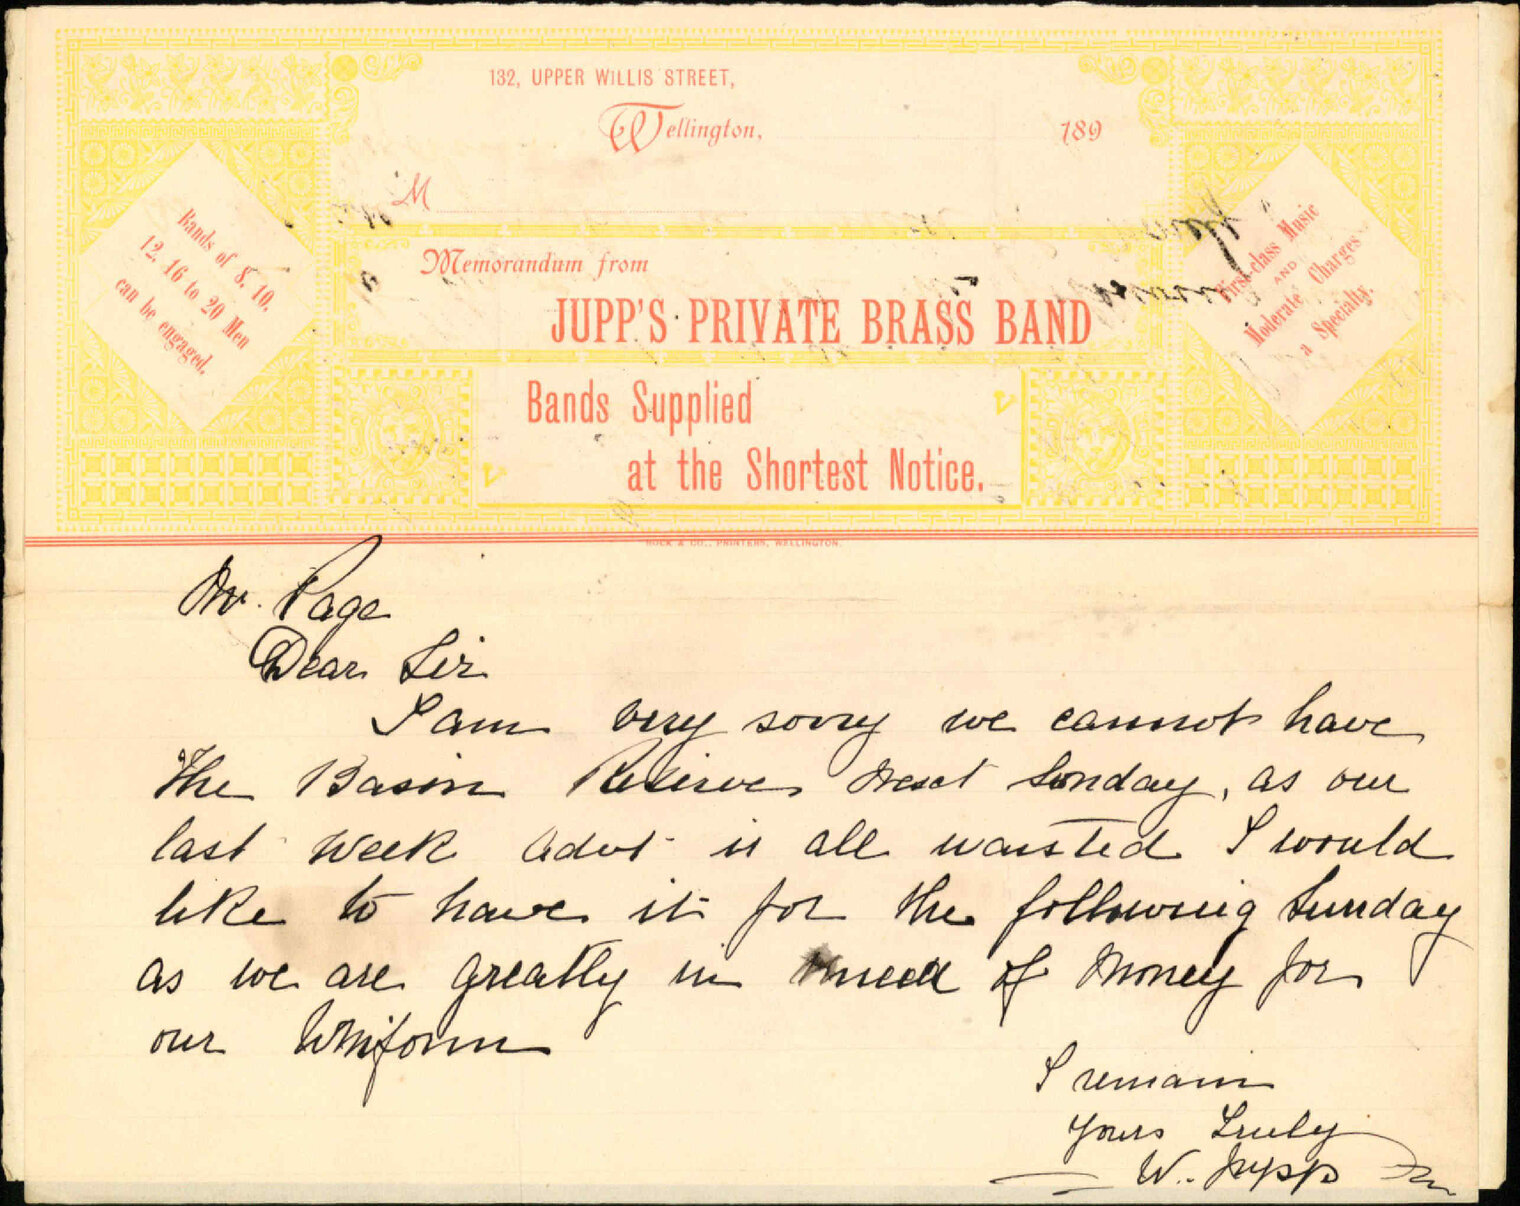 132, UPPER WILLIS STREET,
Wellington, 189
M
Memorandum from
JUPP'S PRIVATE BRASS BAND
Bands Supplied
at the Shortest Notice.
Bands of 8, 10,
12, 16 to 20 Men
can be engaged.
First-class Music
AND
Moderate Charges
a Specialty.
ROCK & CO., PRINTERS, WELLINGTON.
Mr. Page
Dear Sir
I am very sorry we cannot have
the Basin Reserve next Sunday, as our
last week advt is all wasted I would
like to have it for the following Sunday
as we are greatly in need of money for
our Uniform
I remain
Yours Truly
W. Jupp